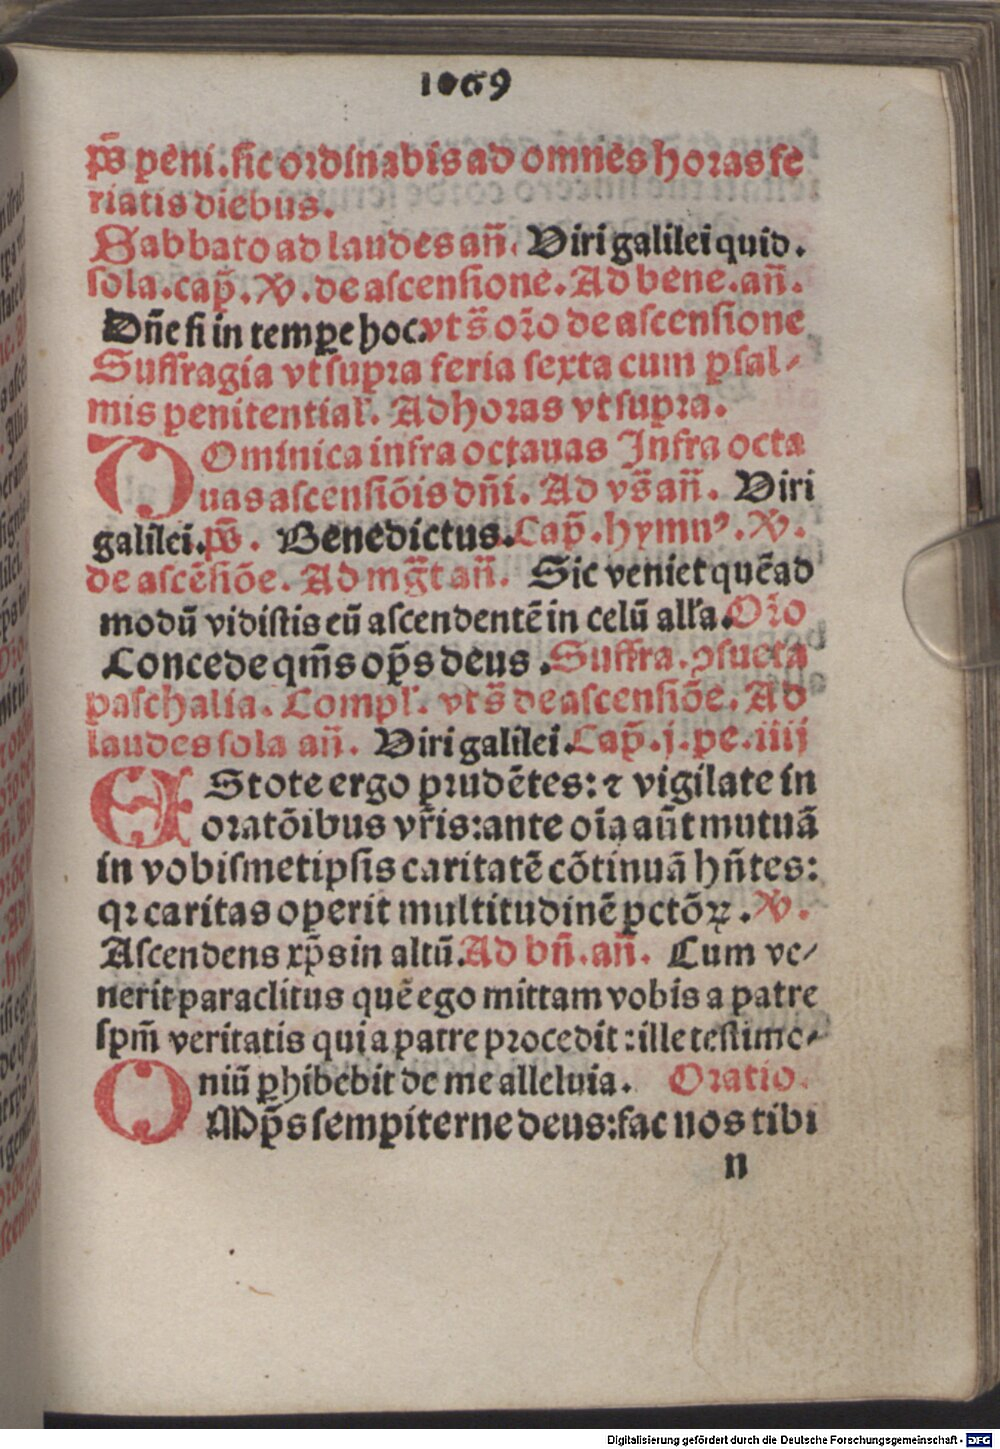 1069
ps̄ peni. sic ordinabis ad omnes horas fe
riatis diebus.
Sabbato ad laudes an̄. Viri galilei quid.
sola. cap̄. ꝟ. de ascensione. Ad bene. an̄.
Dn̄e si in tempe hoc. vt s̄ oro de ascensione
Suffragia vt supra feria sexta cum psal⸗
mis penitential. Ad horas vt supra.
DOminica infra octauas Infra octa
uas ascensiōis dn̄i. Ad vs̄ an̄. Viri
galilei. ps̄. Benedictus. Cap̄. hymnꝰ. ꝟ.
de ascēsiōe. Ad mḡt an̄. Sic veniet quēad
modū vidistis eū ascendentē in celū alla. Oro
Concede qm̄s op̄s deus. Suffra. ꝯsueta
paschalia. Compl. vt s̄ de ascensiōe. Ad
laudes sola an̄. Viri galilei. Cap̄. j. pe. iiij
EStote ergo prudētes: ⁊ vigilate in
oratōibus vr̄is: ante oīa aūt mutuā
in vobismetipsis caritatē cōtinuā hn̄tes:
qꝛ caritas operit multitudinē pctōꝝ. ꝟ.
Ascendens xp̄s in altū. Ad bn̄. an̄. Cum ve⸗
nerit paraclitus quē ego mittam vobis a patre
spm̄ veritatis qui a patre procedit: ille testimo⸗
niū ꝑhibebit de me alleluia. Oratio.
OMp̄s sempiterne deus: fac nos tibi
n
Digitalisierung gefördert durch die Deutsche Forschungsgemeinschaft - DFG